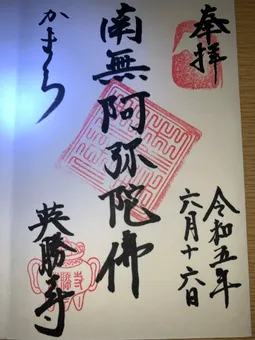 奉拝
令和五年
六月十六日
南無阿弥陀佛
かまくら
英勝寺